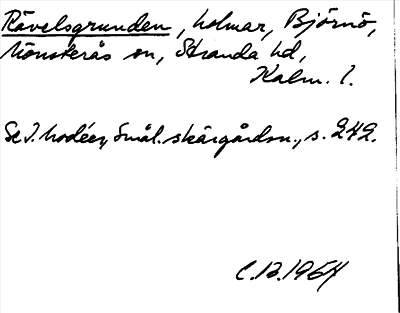 Rävelsgrunden, holmar, Björnö,
Mönsterås sn, Stranda hd,
Kalm. l.
Se I. Modéer, Smål. skärgårdsn., s. 242.
C.B. 1964